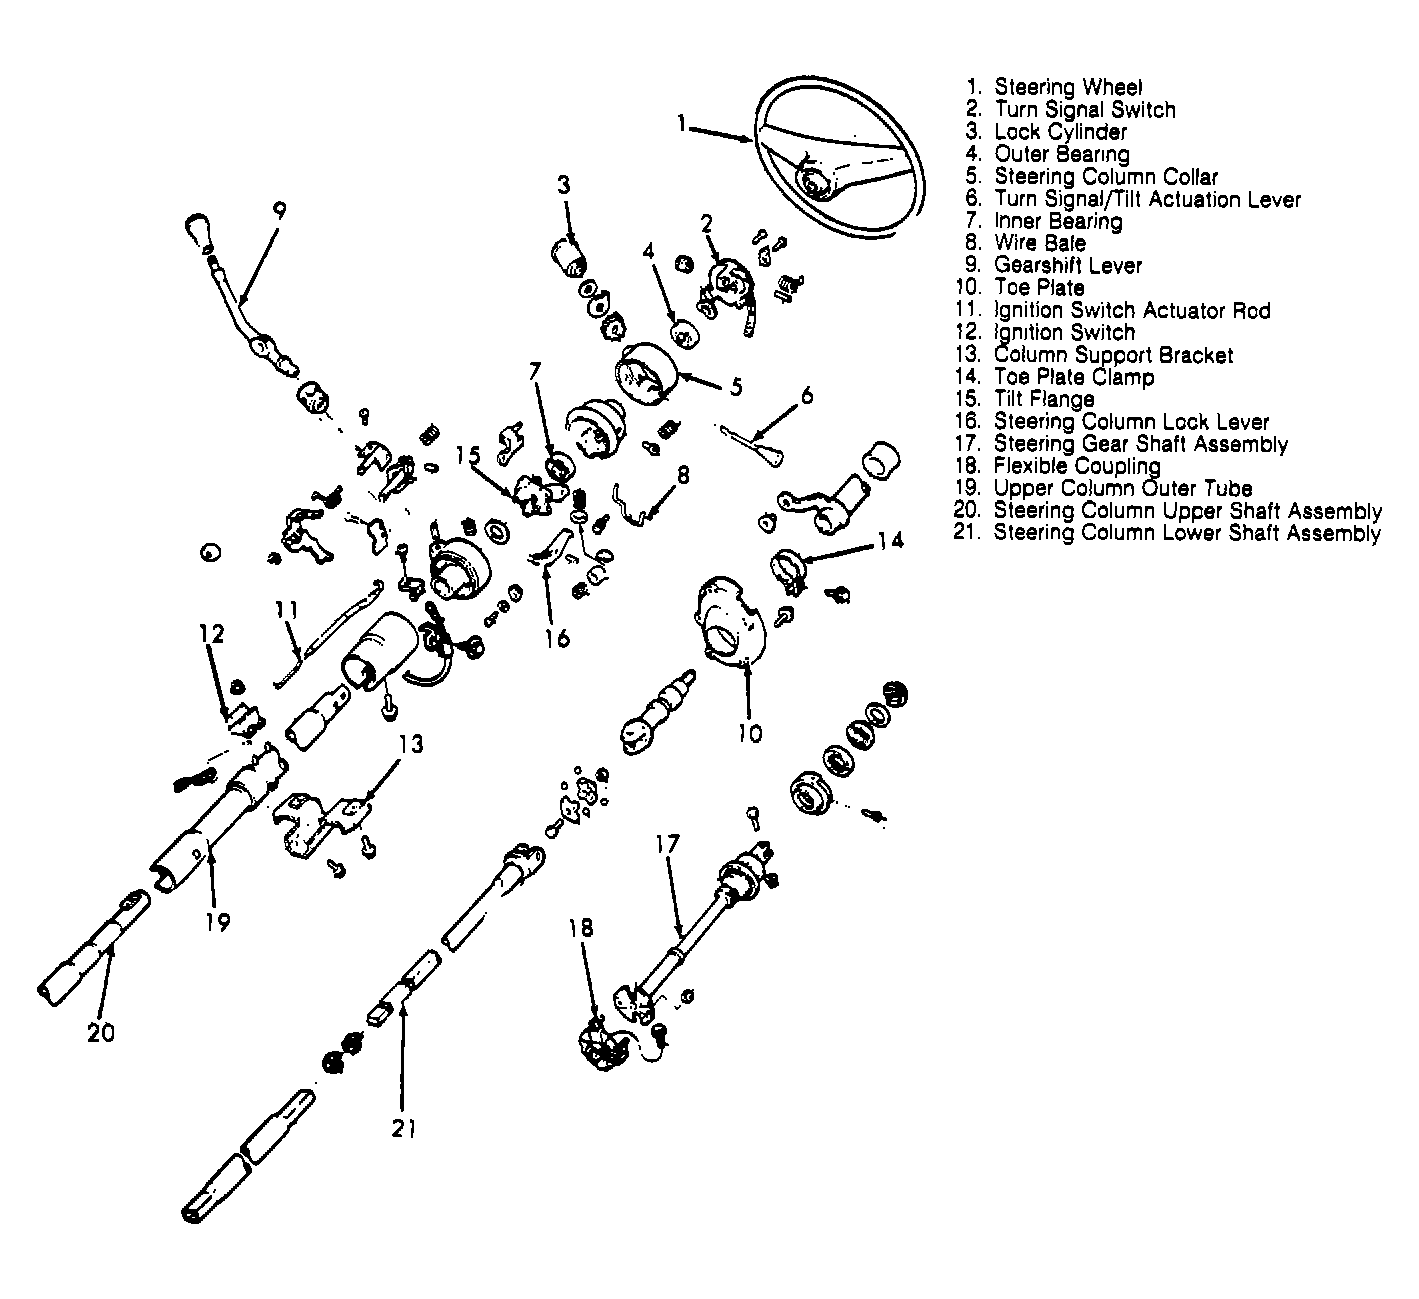 1. Steering Wheel
2. Turn Signal Switch
3. Lock Cylinder
4. Outer Bearing
5. Steering Column Collar
6. Turn Signal/Tilt Actuation Lever
7. Inner Bearing
8. Wire Bale
9. Gearshift Lever
10. Toe Plate
11. Ignition Switch Actuator Rod
12. Ignition Switch
13. Column Support Bracket
14. Toe Plate Clamp
15. Tilt Flange
16. Steering Column Lock Lever
17. Steering Gear Shaft Assembly
18. Flexible Coupling
19. Upper Column Outer Tube
20. Steering Column Upper Shaft Assembly
21. Steering Column Lower Shaft Assembly
1
3
9
2
4
7
5
6
15
8
14
11
12
16
10
13
17
19
18
20
21